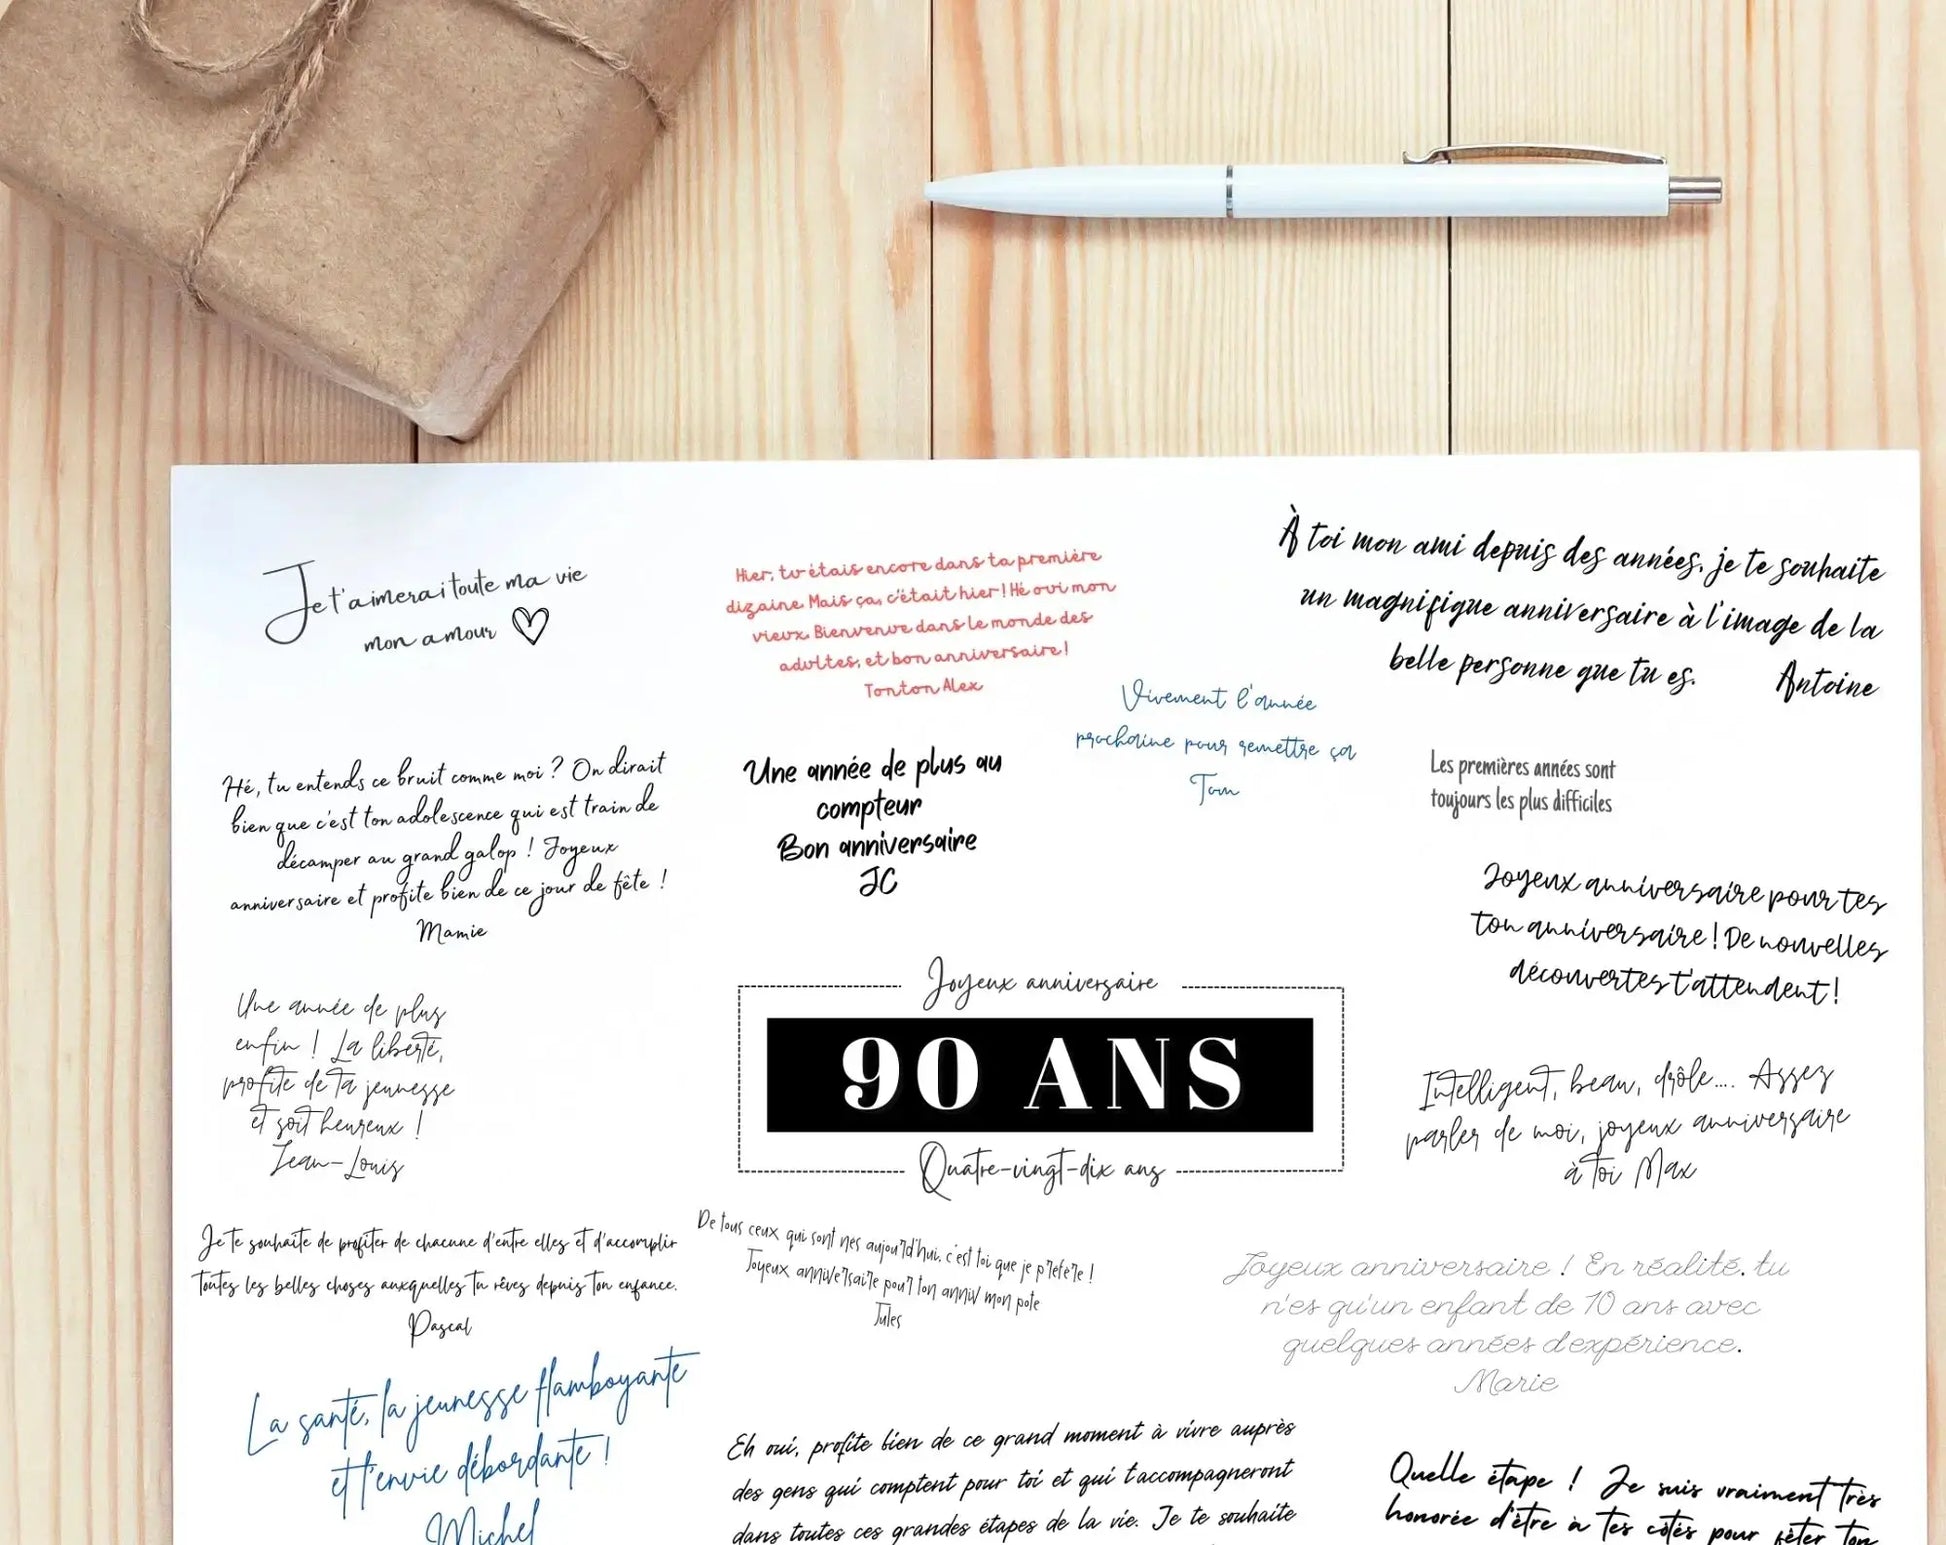 Je t'aimerai toute ma vie
mon amour
Hier, tu étais encore dans ta première
dizaine. Mais ça, c'était hier ! Hé oui mon
vieux. Bienvenue dans le monde des
adultes, et bon anniversaire !
Tonton Alex
À toi mon ami depuis des années, je te souhaite
un magnifique anniversaire à l'image de la
belle personne que tu es. Antoine
Vivement l'année
prochaine pour remettre ça
Tom
Hé, tu entends ce bruit comme moi ? On dirait
bien que c'est ton adolescence qui est train de
décamper au grand galop ! Joyeux
anniversaire et profite bien de ce jour de fête !
Mamie
Une année de plus au
compteur
Bon anniversaire
JC
Les premières années sont
toujours les plus difficiles
Joyeux anniversaire pour tes
ton anniversaire ! De nouvelles
découvertes t'attendent !
Une année de plus
enfin ! La liberté,
profite de ta jeunesse
et soit heureux !
Jean-Louis
Joyeux anniversaire
90 ANS
Quatre-vingt-dix ans
Intelligent, beau, drôle.... Assez
parler de moi, joyeux anniversaire
à toi Max
Je te souhaite de profiter de chacune d'entre elles et d'accomplir
toutes les belles choses auxquelles tu rêves depuis ton enfance.
Pascal
De tous ceux qui sont nés aujourd'hui, c'est toi que je préfère !
Joyeux anniversaire pour ton anniv mon pote
Jules
Joyeux anniversaire ! En réalité, tu
n'es qu'un enfant de 10 ans avec
quelques années d'expérience.
Marie
La santé, la jeunesse flamboyante
et l'envie débordante !
Michel
Eh oui, profite bien de ce grand moment à vivre auprès
des gens qui comptent pour toi et qui t'accompagneront
dans toutes ces grandes étapes de la vie. Je te souhaite
Quelle étape ! Je suis vraiment très
honorée d'être à tes côtés pour fêter ton